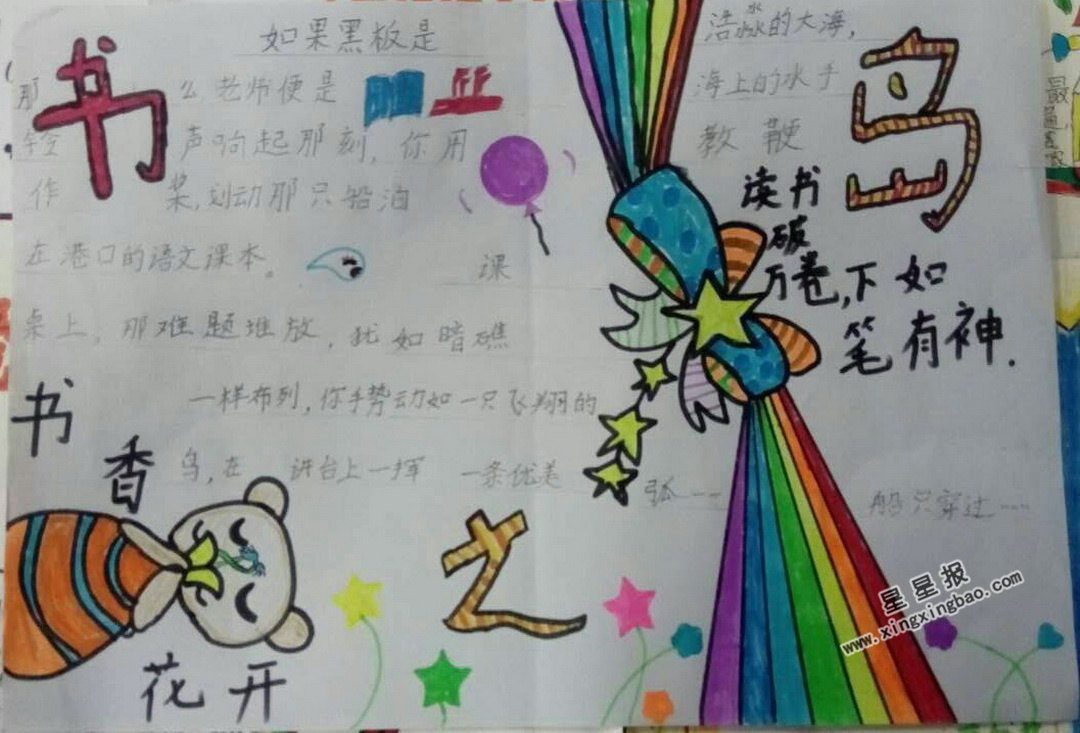 书
鸟
之
如果黑板是 浩淼的大海,
那么老师便是 海上的水手
铃声响起那刻, 你用 教鞭
作桨, 划动那只船泊
在港口的语文课本。 课
桌上, 那难题堆放, 犹如暗礁
一样布列, 你手势动如一只飞翔的
鸟, 在讲台上一挥 一条优美 弧---
船只穿过---
读书
破
万卷,下如
笔有神.
书
香
花开
星星报
www.xingxingbao.com